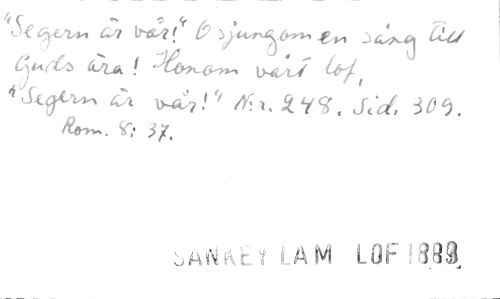 "Segern är vår!" O sjungom en sång till
Guds ära! Honom vårt lof,
"Segern är vår!" N:r. 248. Sid. 309.
Rom. 8: 37.
SANKEY LAM LOF 1889.